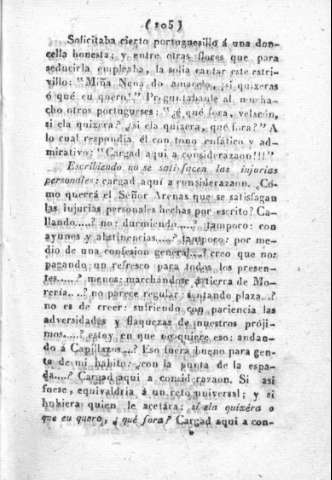 (205)
Solicitaba cierto portuguesillo á una don-
cella honesta; y entre otras flores que para
seducirla empleaba, la solia cantar este estri-
villo: "Miña Nena do amarelo, ¡si quizeras
ó qué eu quero!" Preguntabanle al mucha-
cho otros portugueses: "¿é qué fora, velacón,
si ela quizera? ¿si ela quizera, qué fora?" A
lo cual respondia él con tono enfático y ad-
mirativo: "Cargad aqui á considerazaon!!!"
Escribiendo no se satisfacen las injurias
personales: cargad aquí á considerazaon. ¿Có-
mo querrá el Señor Arenas que se satisfagan
las injurias personales hechas por escrito? Ca-
llando....? no: durmiendo....? tampoco: con
ayunos y abstinencias....? tampoco: por me-
dio de una confesion general....? creo que no:
pagando un refresco para todos los presen-
tes.....? menos: marchándose á tierra de Mo-
rería....? no parece regular: sentando plaza...?
no es de creer: sufriendo con paciencia las
adversidades y flaquezas de nuestros próji-
mos....? estoy en que no quiere eso: andan-
do á Eso fuera bueno para gen-
te de mi habito: ¿con la punta de la espa-
da....? Cargad aqui á considerazaon. Si asi
fuese, equivaldria á un reto universal; y si
hubiera quien le acetára; si ela quizera o
que eu quero, ¿qué fora? Cargad aqui a con-